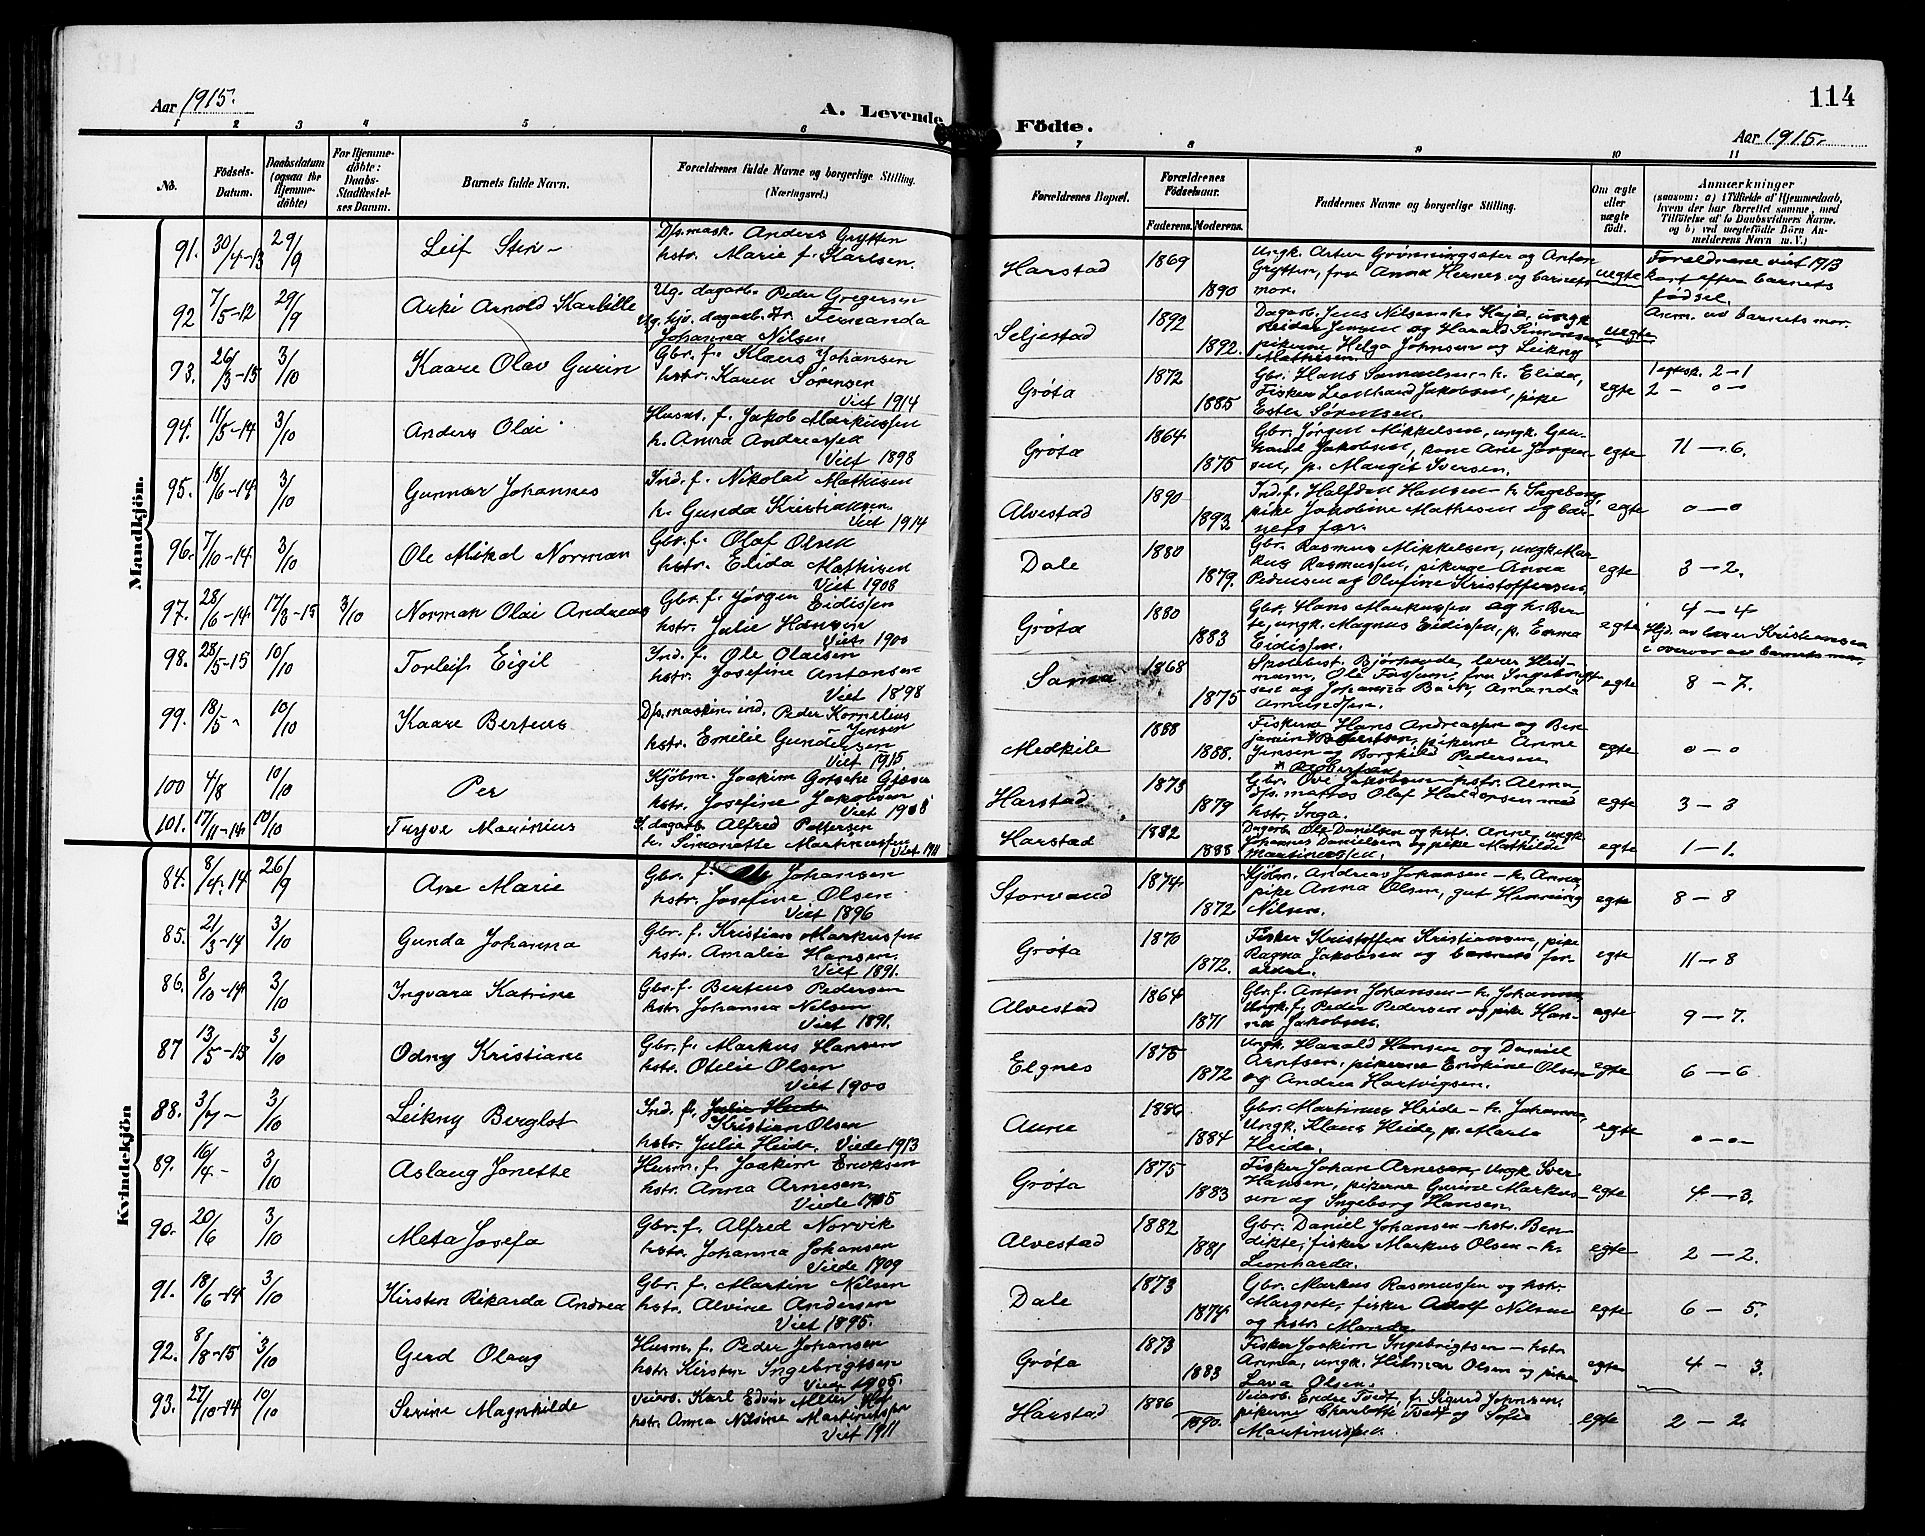 114
Aar 1915.
A. Levende
Födte.
Aar 1915.
1 2 3 4 5 6
7 8 9 10 11
No.
Födsels-
Datum.
Daabsdatum
(ogsaa for
Hjemme-
döbte)
For Hjemme-
döbte:
Daabs-
Stadfestel-
ses Datum.
Barnets fulde Navn.
Forældrenes fulde Navne og borgerlige Stilling.
(Næringsvei.)
Forældrenes Bopæl.
Forældrenes
Födselsaar.
Faderens. Moderens.
Faddernes Navne og borgerlige Stilling.
Om ægte
eller
uægte
født.
Anmærkninger
(saasom: a) i Tilfælde af Hjemmedaab,
hvem der har forrettet samme, med
Tilföielse af to Daabsvidners Navne,
og b) ved uegtefödte Börn An-
melderens Navn m. V.)
Mandkjön.
91. 30/4-13 29/9 Leif Sten -
Ds. mask. Anders Grytten
hstr. Marie f. Karlsen.
Harstad 1869 1890
Ungk. Artur Grönningsæter og Anton
Grytten, fru Anna Hernes og barnets
mor.
uegte
Foreldrene viet 1913
kort efter barnets
födsel.
92 7/5-12 29/9 Arki Arnold Karbille
Ug. dagarb. Peder Gregersen
Johanna Nilsen
Seljestad 1892 1892.
Dagarb. Jens Nilsen
Jensen og Harald Simonsen
pikerne Helga Johnsen og Leikny
Mathisen.
uegte
Anm. av barnets mor.
93. 26/3-15 3/10 Kaare Olav Gurin
Gbr. f. Klaus Johansen
hstr. Karen Sörensen
Viet 1914
Gröta 1872 1885
Gbr. Hans Samuelsen - h. Elida,
Fisker Leonhard Jakobsen, pike
Ester Sörensen.
egte
1 egtesk. 2-1
2 - 0-0
94. 11/5-14 3/10 Anders Olai
Husm. f. Jakob Markussen
h. Anna Andreassen
Viet 1898
Gröta 1864 1875
Gbr. Jörgen Mikkelsen, ungk. Gun-
hard Jakobsen, kone Ane Jörgen-
sen, p. Margit Iversen.
egte 11 - 6.
95. 18/6-14 3/10 Gunnar Johannes
Ind. f. Nikolai Mathisen
h. Gunda Kristiansen.
Viet 1914
Alvestad 1890 1893
Ind. f. Halfdan Hansen - h. Ingeborg,
pike Jakobine Mathisen og bar-
nets far.
egte 0-0
96. 7/10-14 3/10 Ole Mikal Norman
Gbr. f. Olaf Olsen
hstr. Elida Mathisen
Viet 1908
Dale 1880 1879.
Gbr. Rasmus Mikkelsen, ungk. Mar-
kus Rasmussen, pikerne Anna
Pedersen og Olufine Kristoffersen.
egte 3 - 2.
97. 28/6-14 17/3-15 3/10 Norman Olai Andreas
Gbr. f. Jörgen Eidissen
hstr. Julie Hansen
Viet 1900
Gröta 1880 1883
Gbr. Hans Markussen og h. Ber-
te, ungk. Magnus Eidissen, p. Emma
Eidissen.
egte
4 - 4
Hjd. av lærer Kristiansen
i overvær av barnets mor.
98. 28/5-15 10/10 Torleif Eigil
Ind. f. Ole Olaisen
hstr. Josefine Antonsen
Viet 1898
Sama 1868 1875
Skolebest. Björhovde, lærer Heit-
mann, Ole Fossum, fru Ingebrigt-
sen og Johanna Bech, Amanda
Amundsen.
egte 8 - 7.
99. 18/5 - 10/10 Kaare Berteus
Ds. maskin. ind. Peder Kornelius
- Jensen
hstr. Emelie Gundersen
Viet 1915.
Medkile 1888 1888.
Fiskerne Hans Andreassen og Ben-
jamin Robertsen, pikerne Anne
Jensen og Borghild Pedersen
x Robertsen
egte 0-0
100 4/8 10/10 Per
Kjöbm. Joakim Gotsche Gjæver
hstr. Josefine Jakobsen
Viet 1908
Harstad 1873 1879
Gbr. Ove Jakobsen - hstr. Alma,
ds. matros Olaf Haldorsen med
hstr. Inga.
egte 3 - 3
101. 17/11-14 10/10 Trygve Marinius
dagarb. Alfred Pettersen
h. Simonette Martinussen
Viet 1911
Harstad 1882 1888
Dagarb. Ole Danielsen og hst. Anne, ungk.
Johannes Danielsen og pike Mathilde
Martinussen.
egte 1-1.
Kvindekjön
84. 8/4-14 26/9 Ane Marie
Gbr. f. Johansen
hstr. Josefine Olsen
Viet 1896
Storvand 1874 1872
Kjölm. Andreas Johansen - h. Anna,
pike Anna Olsen, gut Henning
Nilsen.
egte 8 - 8
85. 21/3-14 3/10 Gunda Johanna
Gbr. f. Kristian Markussen
hstr. Amalie Hansen.
Viet 1891.
Gröta 1870 1872.
Fisker Kristoffer Kristiansen, pike
Ragna Jakobsen og barnets for-
ældre.
egte 11 - 8
86. 8/10-14 3/10 Ingvara Katrine
Gbr. f. Berteus Pedersen
hstr. Johanna Nilsen
Viet 1891.
Alvestad 1864 1871
Gbr. f. Anton Johansen - h. Johanna
Ungk. f. Peder Pedersen og pike Han-
na Jakobsen.
egte 9 - 7.
87 13/5-15 3/10 Odny Kristiane
Gbr. f. Markus Hansen
hstr. Otelie Olsen
Viet 1900
Elgnes 1875 1872
Ungk. Harald Hansen og Daniel
Arntsen, pikerne Enokine Olsen
og Andrea Hartvigsen.
egte 6 - 6
88. 3/7 - 3/10 Leikny Berglot
Ind. f. Julie Heide
Kristian Olsen
hstr. Julie Heide. Viede 1913
Aune 1886 1884
Gbr. Martinus Heide - h. Johanna,
Ungk. Klaus Heide, p. Marta
Heide.
egte 0-0-
89. 16/4 - 3/10 Aslaug Jonette
Husm. f. Joakim Eriksen
hstr. Anna Arnesen
Viede 1905
Gröta 1875 1883
Fisker Johan Arnesen, ungk. Iver
Hansen, pikerne Gurine Markus-
sen og Ingeborg Hansen.
egte 4 - 3.
90. 20/6 3/10 Meta Josefa
Gbr. f. Alfred Norvik
hstr. Johanna Johansen
Viede 1909
Alvestad 1882 1881
Gbr. Daniel Johansen - hstr. Ben-
dikte, fisker Markus Olsen - h.
Leonharda.
egte 2 - 2.
91. 18/6-14 3/10 Kirsten Rikarda Andrea
Gbr. f. Martin Nilsen
hstr. Alvine Andersen
Viet 1895.
Dale 1873 1874
Gbr. Markus Rasmussen og hstr.
Margrete, fisker Adolf Nilsen
og hstr. Manda
egte 6 - 5.
92. 8/8-15 3/10 Gerd Olaug
Husm. f. Peder Johansen
hstr. Kirsten Ingebrigtsen
Viede 1905.
Gröta 1873 1883
Fisker Joakim Ingebrigtsen - hstr.
Anna, ungk. Hilmar Olsen og pike
Lava Olsen.
egte 4 - 3.
93. 27/10-14 10/10 Serine Magnhilde
Veiarb. Karl Edvin
hstr. Anna Nildine Martinussen
Viet 1911
Harstad 1886 1890.
Veiarb. Endre Tvedt, fr. Sigurd Johansen,
pikerne Charlotte Tvedt og Sofie
Martinussen.
egte 2 - 2.